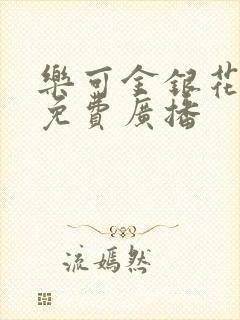 樂可金銀花
免費廣播
流嫣然